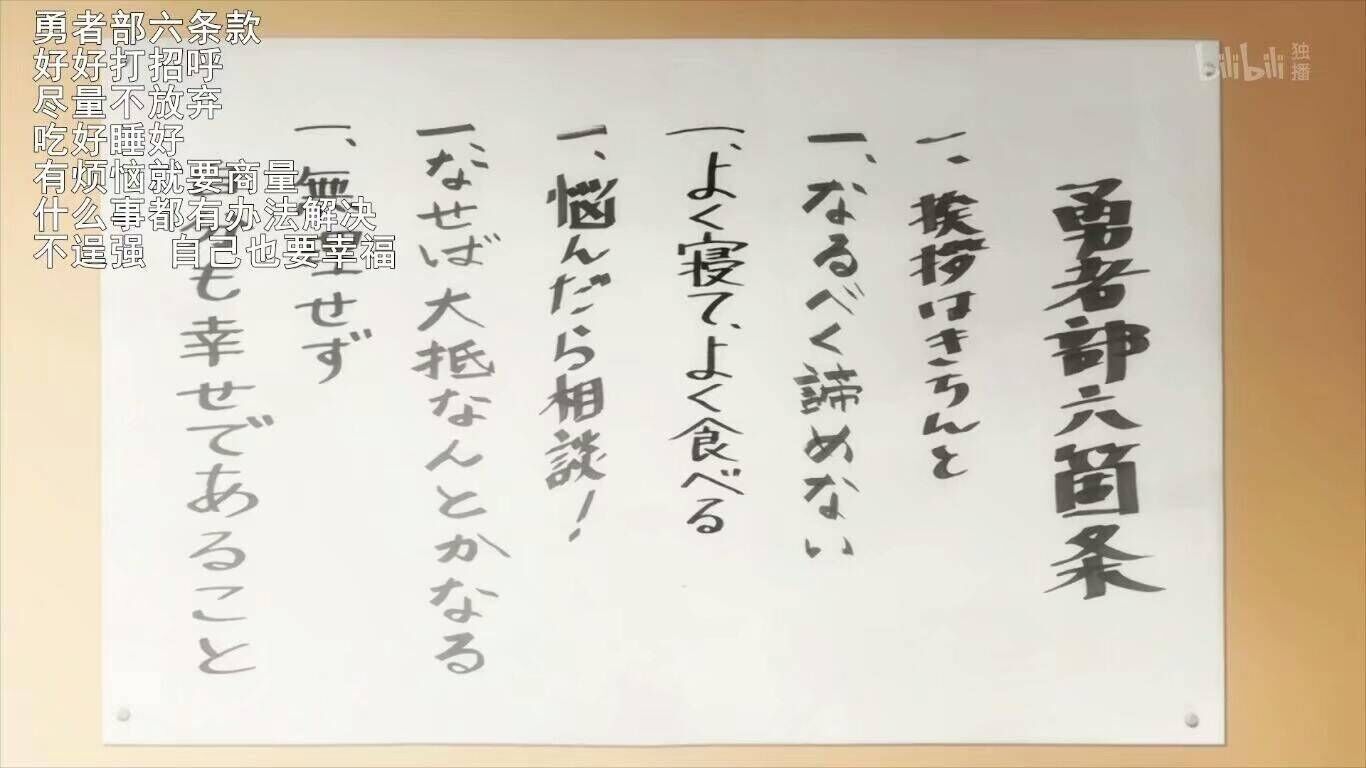 勇者部六条款
好好打招呼
尽量不放弃
吃好睡好
有烦恼就要商量
什么事都有办法解决
不逞强 自己也要幸福
bilibili 独播
勇者部六箇条
一、挨拶はきちんと
一、なるべく諦めない
一、よく寝て、よく食べる
一、悩んだら相談!
一、なせば大抵なんとかなる
一、無理せず
自分も幸せであること